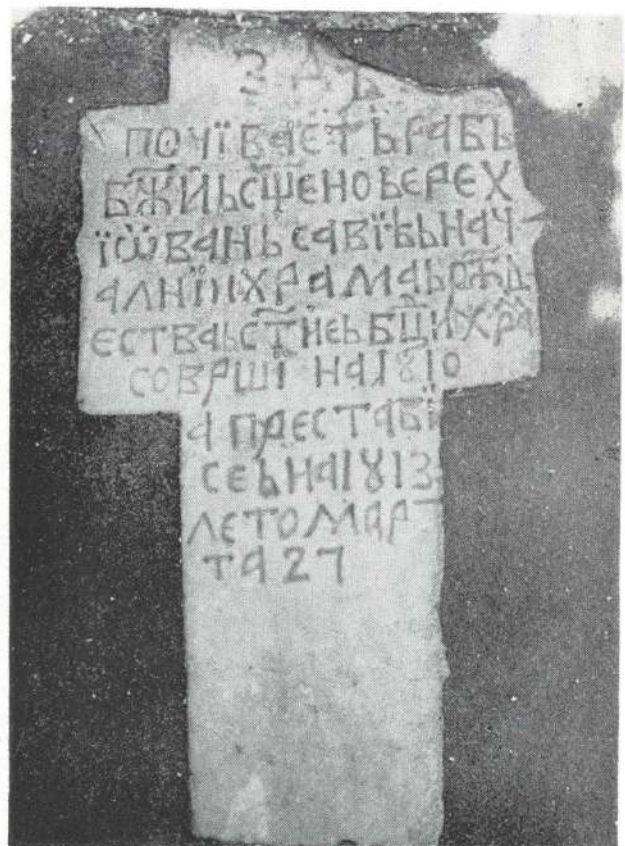 ЗДѢ
ПОЧЇВАЄТЬ РАБЬ
БЖИЬ СЩЕНОЬЕРЕХ
ЇѠВАНЬ САВЇѢЬ НАЧ
АЛНЇП ХРАМАЬ РѠЖД
ЕСТВАЬ СТИЄЬ БЦИ ХРА
СОВРШЇ НА 1810
А ПРЕСТАВЇ
СЕЬ НА 1813
ЛЕТО МАР
ТА 27